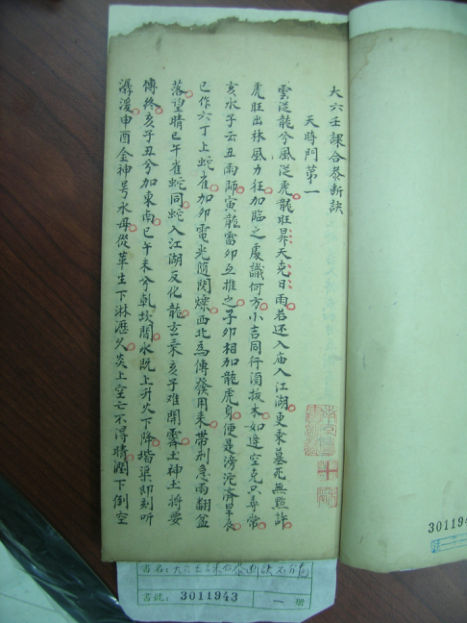 大六壬課合參斷訣
天時門第一
雲從龍兮風從虎龍旺昇天克日雨若还入庙入江湖更乘墓死無點許
虎旺出林風力狂加臨之處識何方小吉同行須拔木如逢空克只尋常
亥水子云丑雨師寅龍雷卯互推之子卯相加龍虎身便是滂沱濟旱辰
巳作六丁上蛇雀加卯電光隨閃爍西北為傳發用来帶刑急雨翻盆
落望晴巳午雀蛇同蛇入江湖反化龍玄乘亥子难開霽土神土将要
傳終亥子丑兮加東南巳午未兮乾坎間水既上升火下降堦渠即刻听
潺湲申酉金神号水母從革生下淋漓久炎上空亡不得晴潤下倒空
3011943
書號：3011943 一 冊